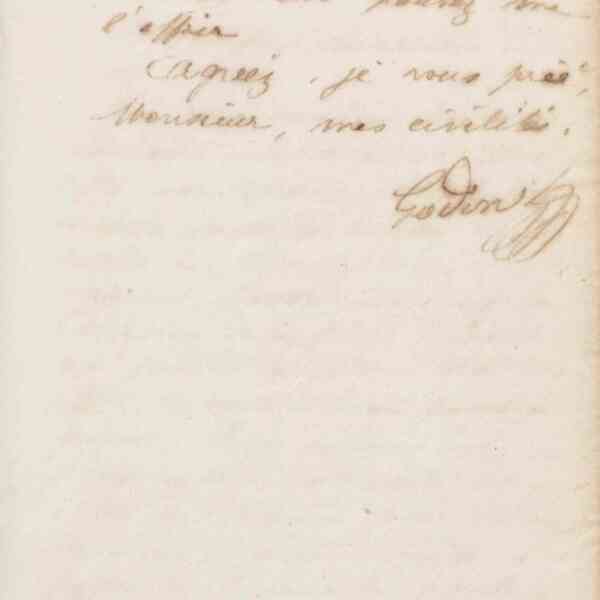 pouvez me
l'offrir
Agréez, je vous prie,
Monsieur, mes civilités.
Godin